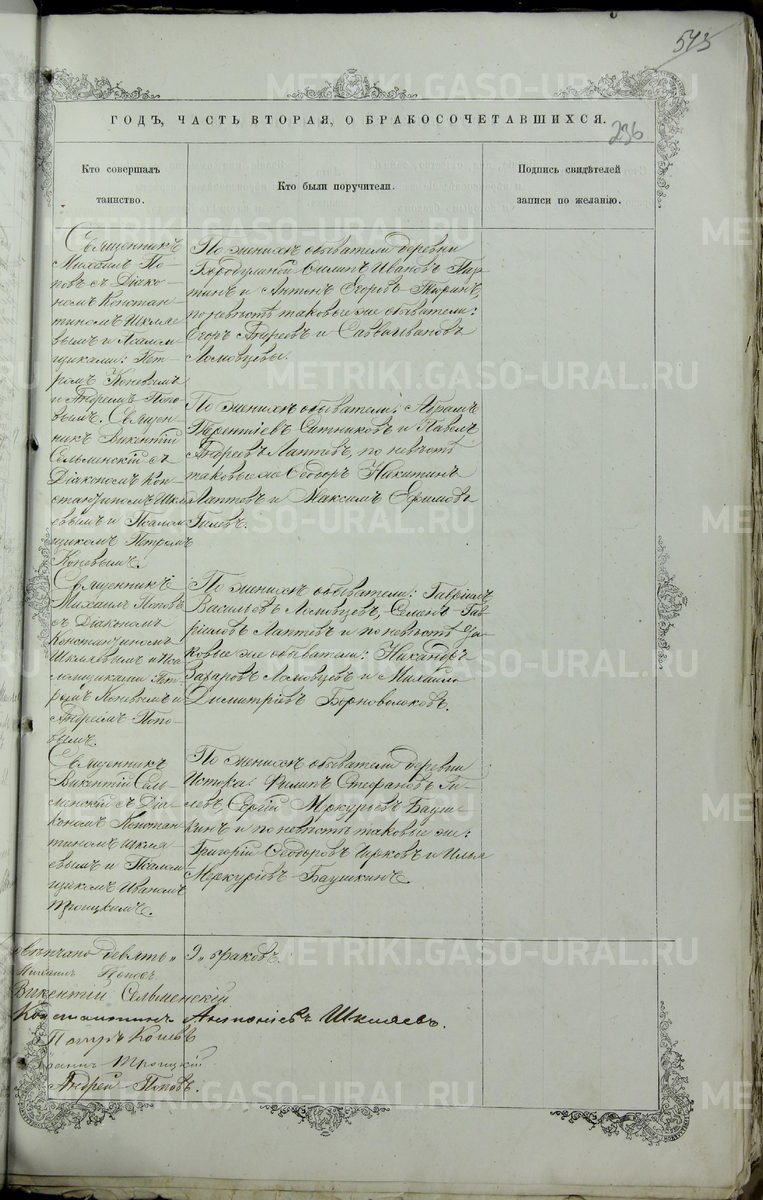 543
ГОДЪ, ЧАСТЬ ВТОРАЯ, О БРАКОСОЧЕТАВШИХСЯ.
236
Кто совершалъ
таинство.
Кто были поручители.
Подпись свидѣтелей
записи по желанію.
Священникъ
Михаилъ По-
повъ съ Діако-
номъ Констан
тиномъ Шкляе
вымъ и Псалом
щиками: Пет-
ромъ Коневымъ
и Андреемъ Попо
вымъ.
По женихѣ обыватели деревни
Филипъ Ивановъ Пар-
тинъ и Антонъ Егоровъ Тюринъ,
по невѣстѣ таковые же обыватели:
Егоръ Андреевъ и Савва Ивановъ
Ломовцевы.
Священ-
никъ Викентій
Сельменскій съ
Діакономъ Кон
стантиномъ Шкля
евымъ и Псалом
щикомъ Петромъ
Коневымъ.
По женихѣ обыватели: Абрамъ
Терентіевъ Ситниковъ и Павелъ
Андреевъ Лаптевъ, по невѣстѣ
таковые же Ѳедоръ Никитинъ
Лаптевъ и Максимъ Ефимовъ
Гилевъ.
Священникъ
Михаилъ Поповъ
съ Діакономъ
Константиномъ
Шкляевымъ и Пса
ломщиками Пет
ромъ Коневымъ и
Андреемъ Попо-
вымъ.
По женихѣ обыватели: Гавріилъ
Васильевъ Ломовцевъ, Семенъ Гав
ріиловъ Лаптевъ и по невѣстѣ та
ковые же обыватели: Никандръ
Захаровъ Ломовцевъ и Михаилъ
Димитріевъ Борноволоковъ.
Священникъ
Викентій Сель-
менскій съ Діа
кономъ Констан
тиномъ Шкля
евымъ и Псалом
щикомъ Иваномъ
Троицкимъ.
По женихѣ обыватели деревни
Истока: Филипъ Стефановъ Ги-
левъ, Сергій Меркурьевъ Бауш-
кинъ и по невѣстѣ таковые же:
Григорій Ѳедоровъ и Илья
Меркуріевъ Баушкинъ.
вѣнчано девять „9„ браковъ.
Михаилъ Поповъ
Викентій Сельменскій
Константинъ Антоніевъ Шкляевъ.
Петръ Коневъ
Іоаннъ Троицкій
Андрей Поповъ.
METRIKI.GASO-URAL.RU